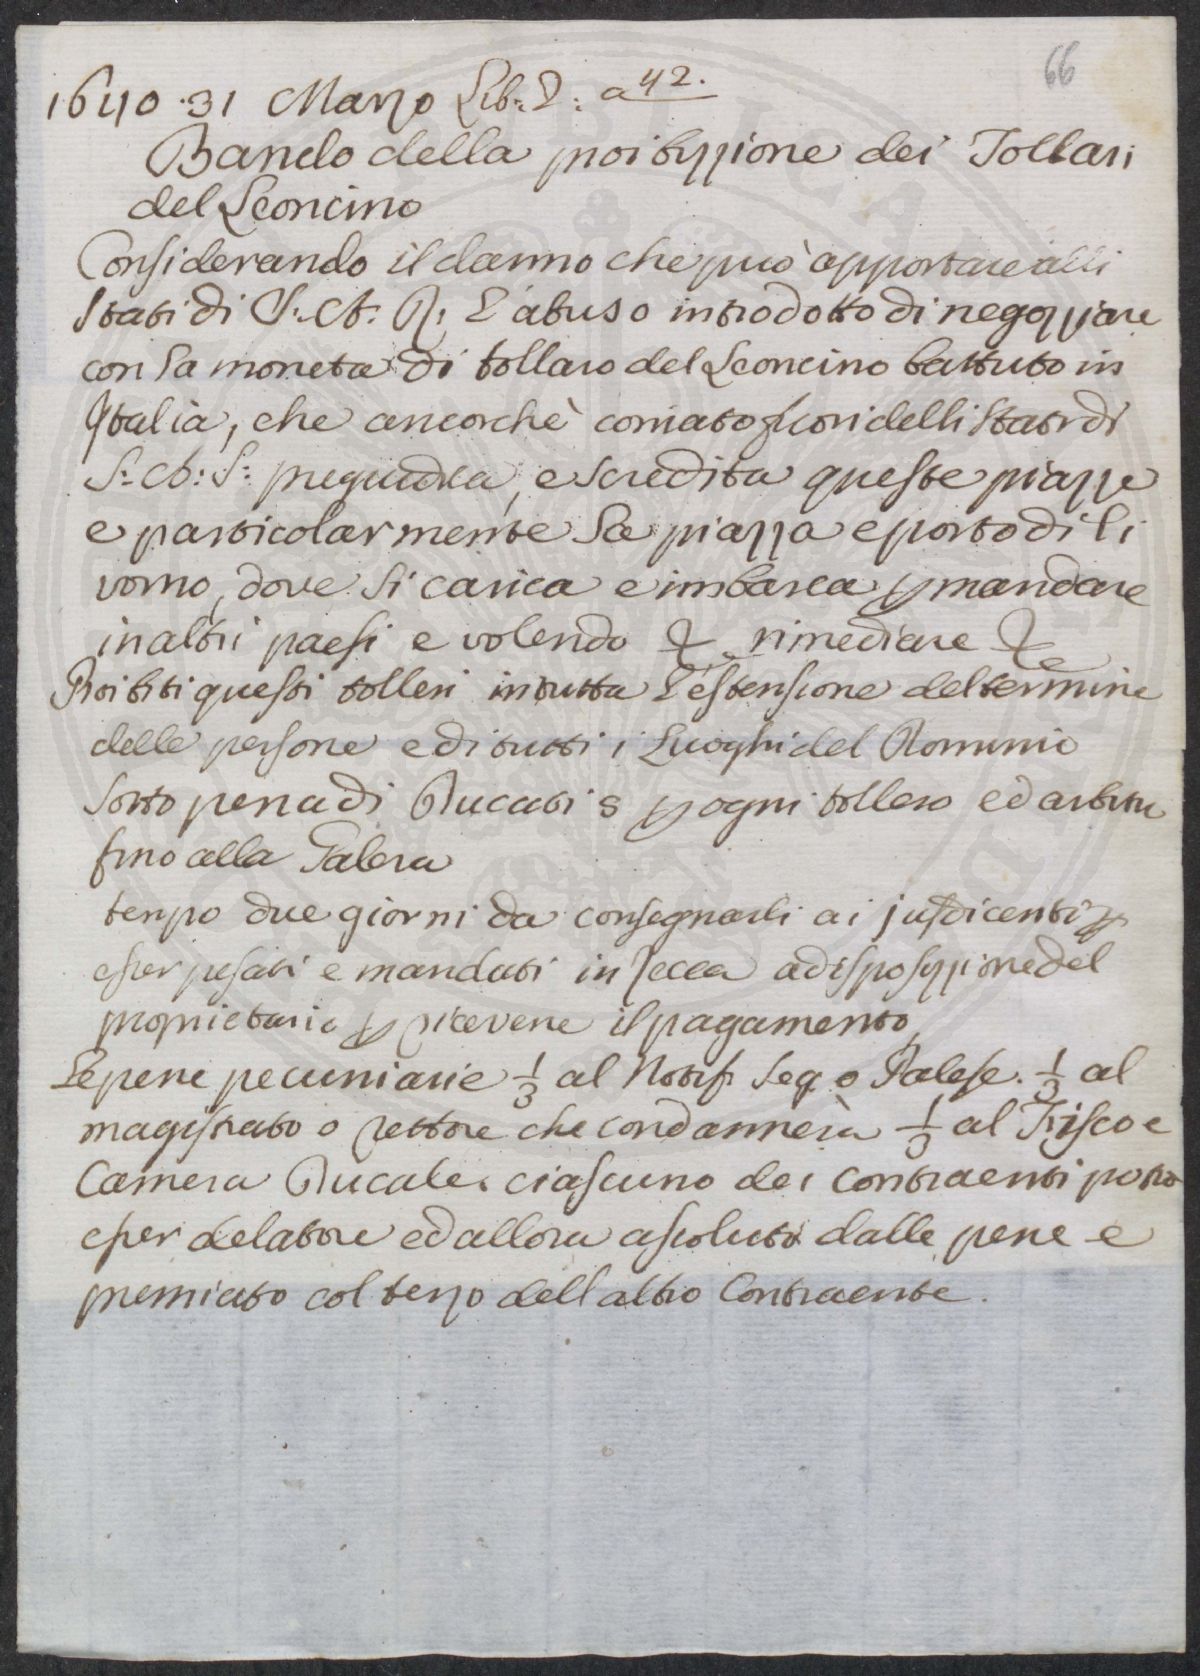 66
1640 . 31 Marzo Lib: 2: a 42.
Bando della proibizzione dei Tollari
del Leoncino
Considerando il danno che può apportare alli
Stati di S: A: R: l'abuso introdotto di negozziare
con la moneta di tollaro del Leoncino battuto in
Italia, che ancorchè coniato fuori delli Stati di
S: A: S: pregiudica, e scredita queste piazze
e particolarmente la piazza e porto di Li
vorno, dove si carica e imbarca p mandare
in altri paesi e volendo &c rimediare &c
Proibiti questi tolleri in tutta l'estensione del termine
delle persone e di tutti i Luoghi del Dominio
sotto pena di Ducati s p ogni tollero ed arbitri
fino alla Galera
tempo due giorni da consegnarli ai jusdicenti p
esser pesati e mandati in Zecca a disposizzione del
proprietario p ricevene il pagamento
Le pene pecuniarie 1/3 al Notif. Seg. o Palese. 1/3 al
magistrato o rettore che condannerà 1/3 al Fisco e
Camera Ducale. ciascuno dei Contraenti potrà
esser delatore ed allora asoluto dalle pene e
premiato col terzo dell altro Contraente.